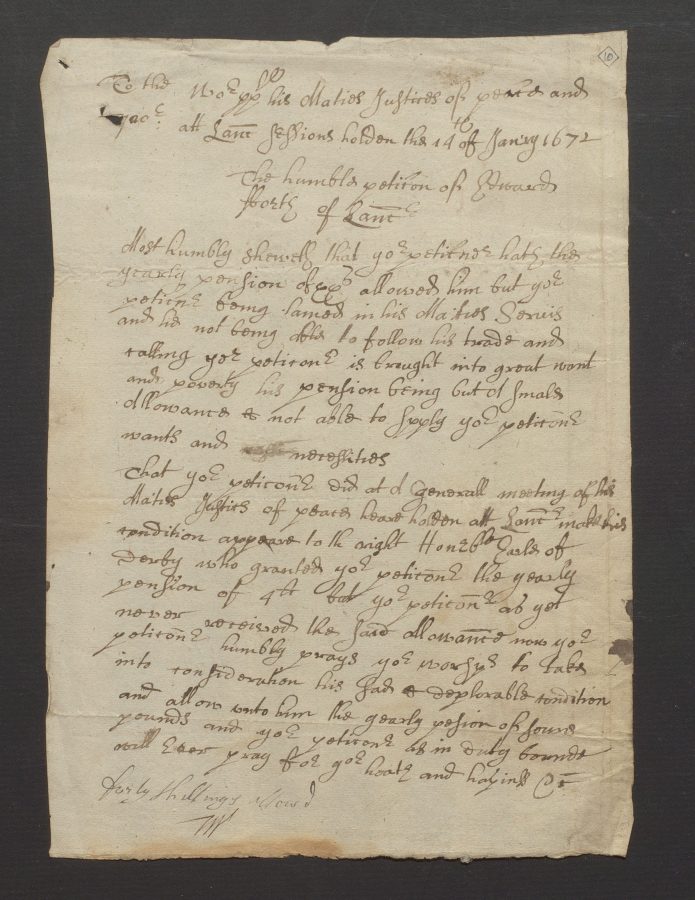 10
To the Wor:pp his Maties Justices of peace and
att Lanc Sessions holden the 14th of Janry 1672
The humble peticon of Edward
fforth of Lancr
Most humbly sheweth that yor peticner hath the
yearly pension of xxs allowed him but yor
peticnr being lamed in his Maties Servis
and he not being able to follow his trade and
calling yor peticonr is brought into great want
and poverty his pension being but of smale
allowance & not able to sply yor peticonr
wants and necessities
That yor peticonr did at a Generall meeting of his
Maties Justics of peace heare holden att Lancr make his
condition appeare to th right Honrble Earle of
Derby who granted yor peticonr the yearly
pension of 4ll but yor peticonr as yet
never received the said allowance now yor
peticonr humbly prays yor worsps to take
into consideration his sad & deplorable condition
and allow unto him the yearly pesion of foure
pounds and yor peticonr as in duty bounde
will Ever pray for yor heath and hapines &c
forty shillings allowd